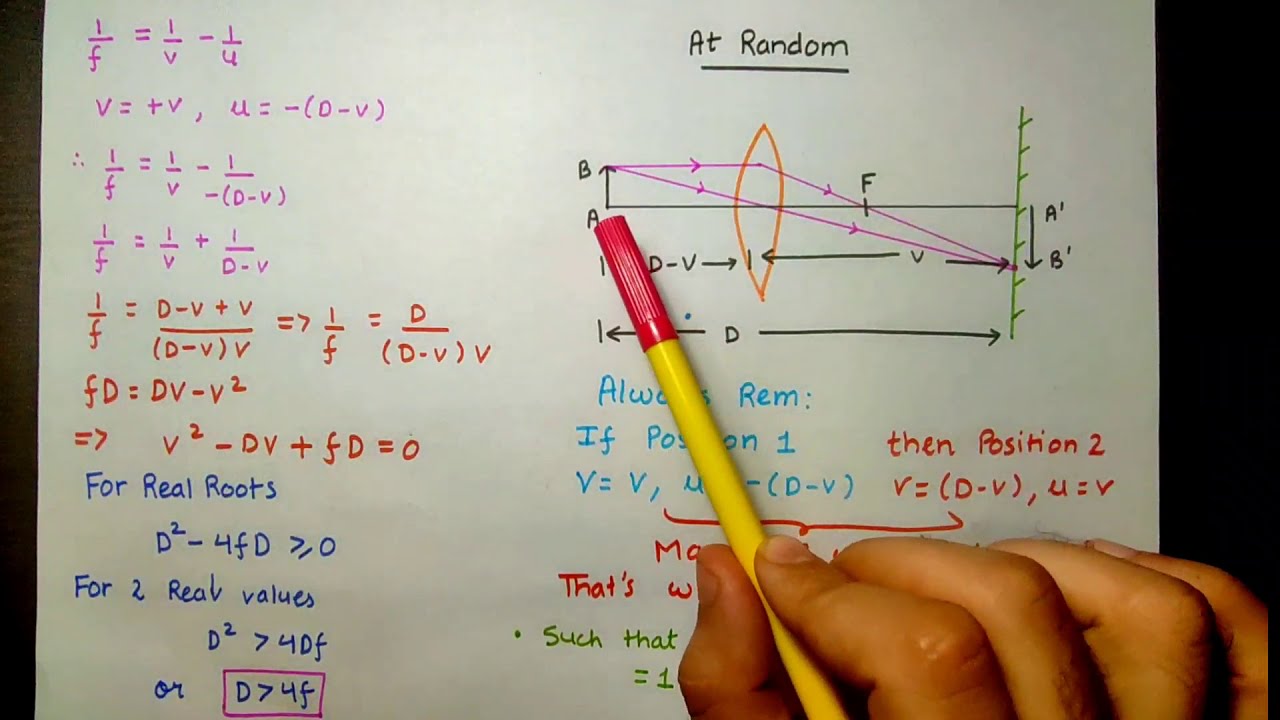 1/f = 1/v - 1/u
V = +V, u = -(D-V)
∴ 1/f = 1/v - 1/-(D-V)
1/f = 1/v + 1/D-V
1/f = D-V+V/(D-V)V => 1/f = D/(D-V)V
fD = DV-V²
=> V² - DV + fD = 0
For Real Roots
D² - 4fD ≥ 0
For 2 Real values
D² > 4Df
or D > 4f
At Random
B
F
A
A'
D-V
V
B'
D
Rem:
If Position 1 then Position 2
V = V, -(D-V) V = (D-V), u = V
That's
• Such that
= 1